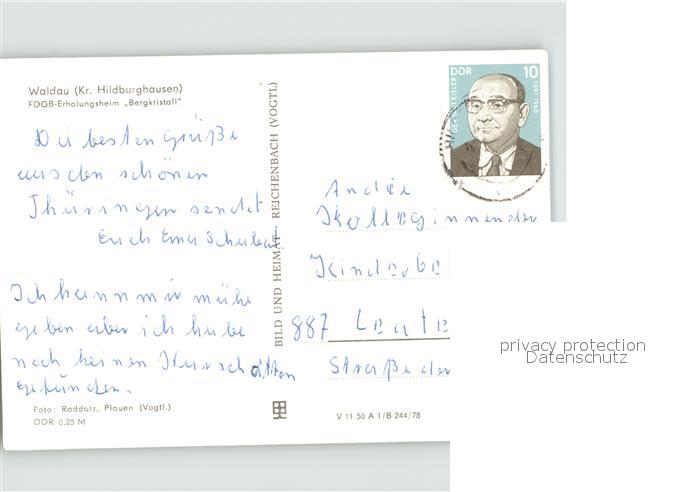 Waldau (Kr. Hildburghausen)
FDGB-Erholungsheim „Bergkristall"
Die besten Grüße
aus den schönen
Thüringen sendet
Euch Eure
Ich kann mir mühe
geben aber ich habe
noch keinen Kurschatten
gefunden.
Foto: Raddatz, Plauen (Vogtl.)
DDR 0,25 M
BILD UND HEIMAT REICHENBACH (VOGTL)
DDR 10
GERHART EISLER
1897-1968
An die
Kolleginnen der
Kinder
887
Straße der
V 11 50 A 1/B 244/78
privacy protection
Datenschutz